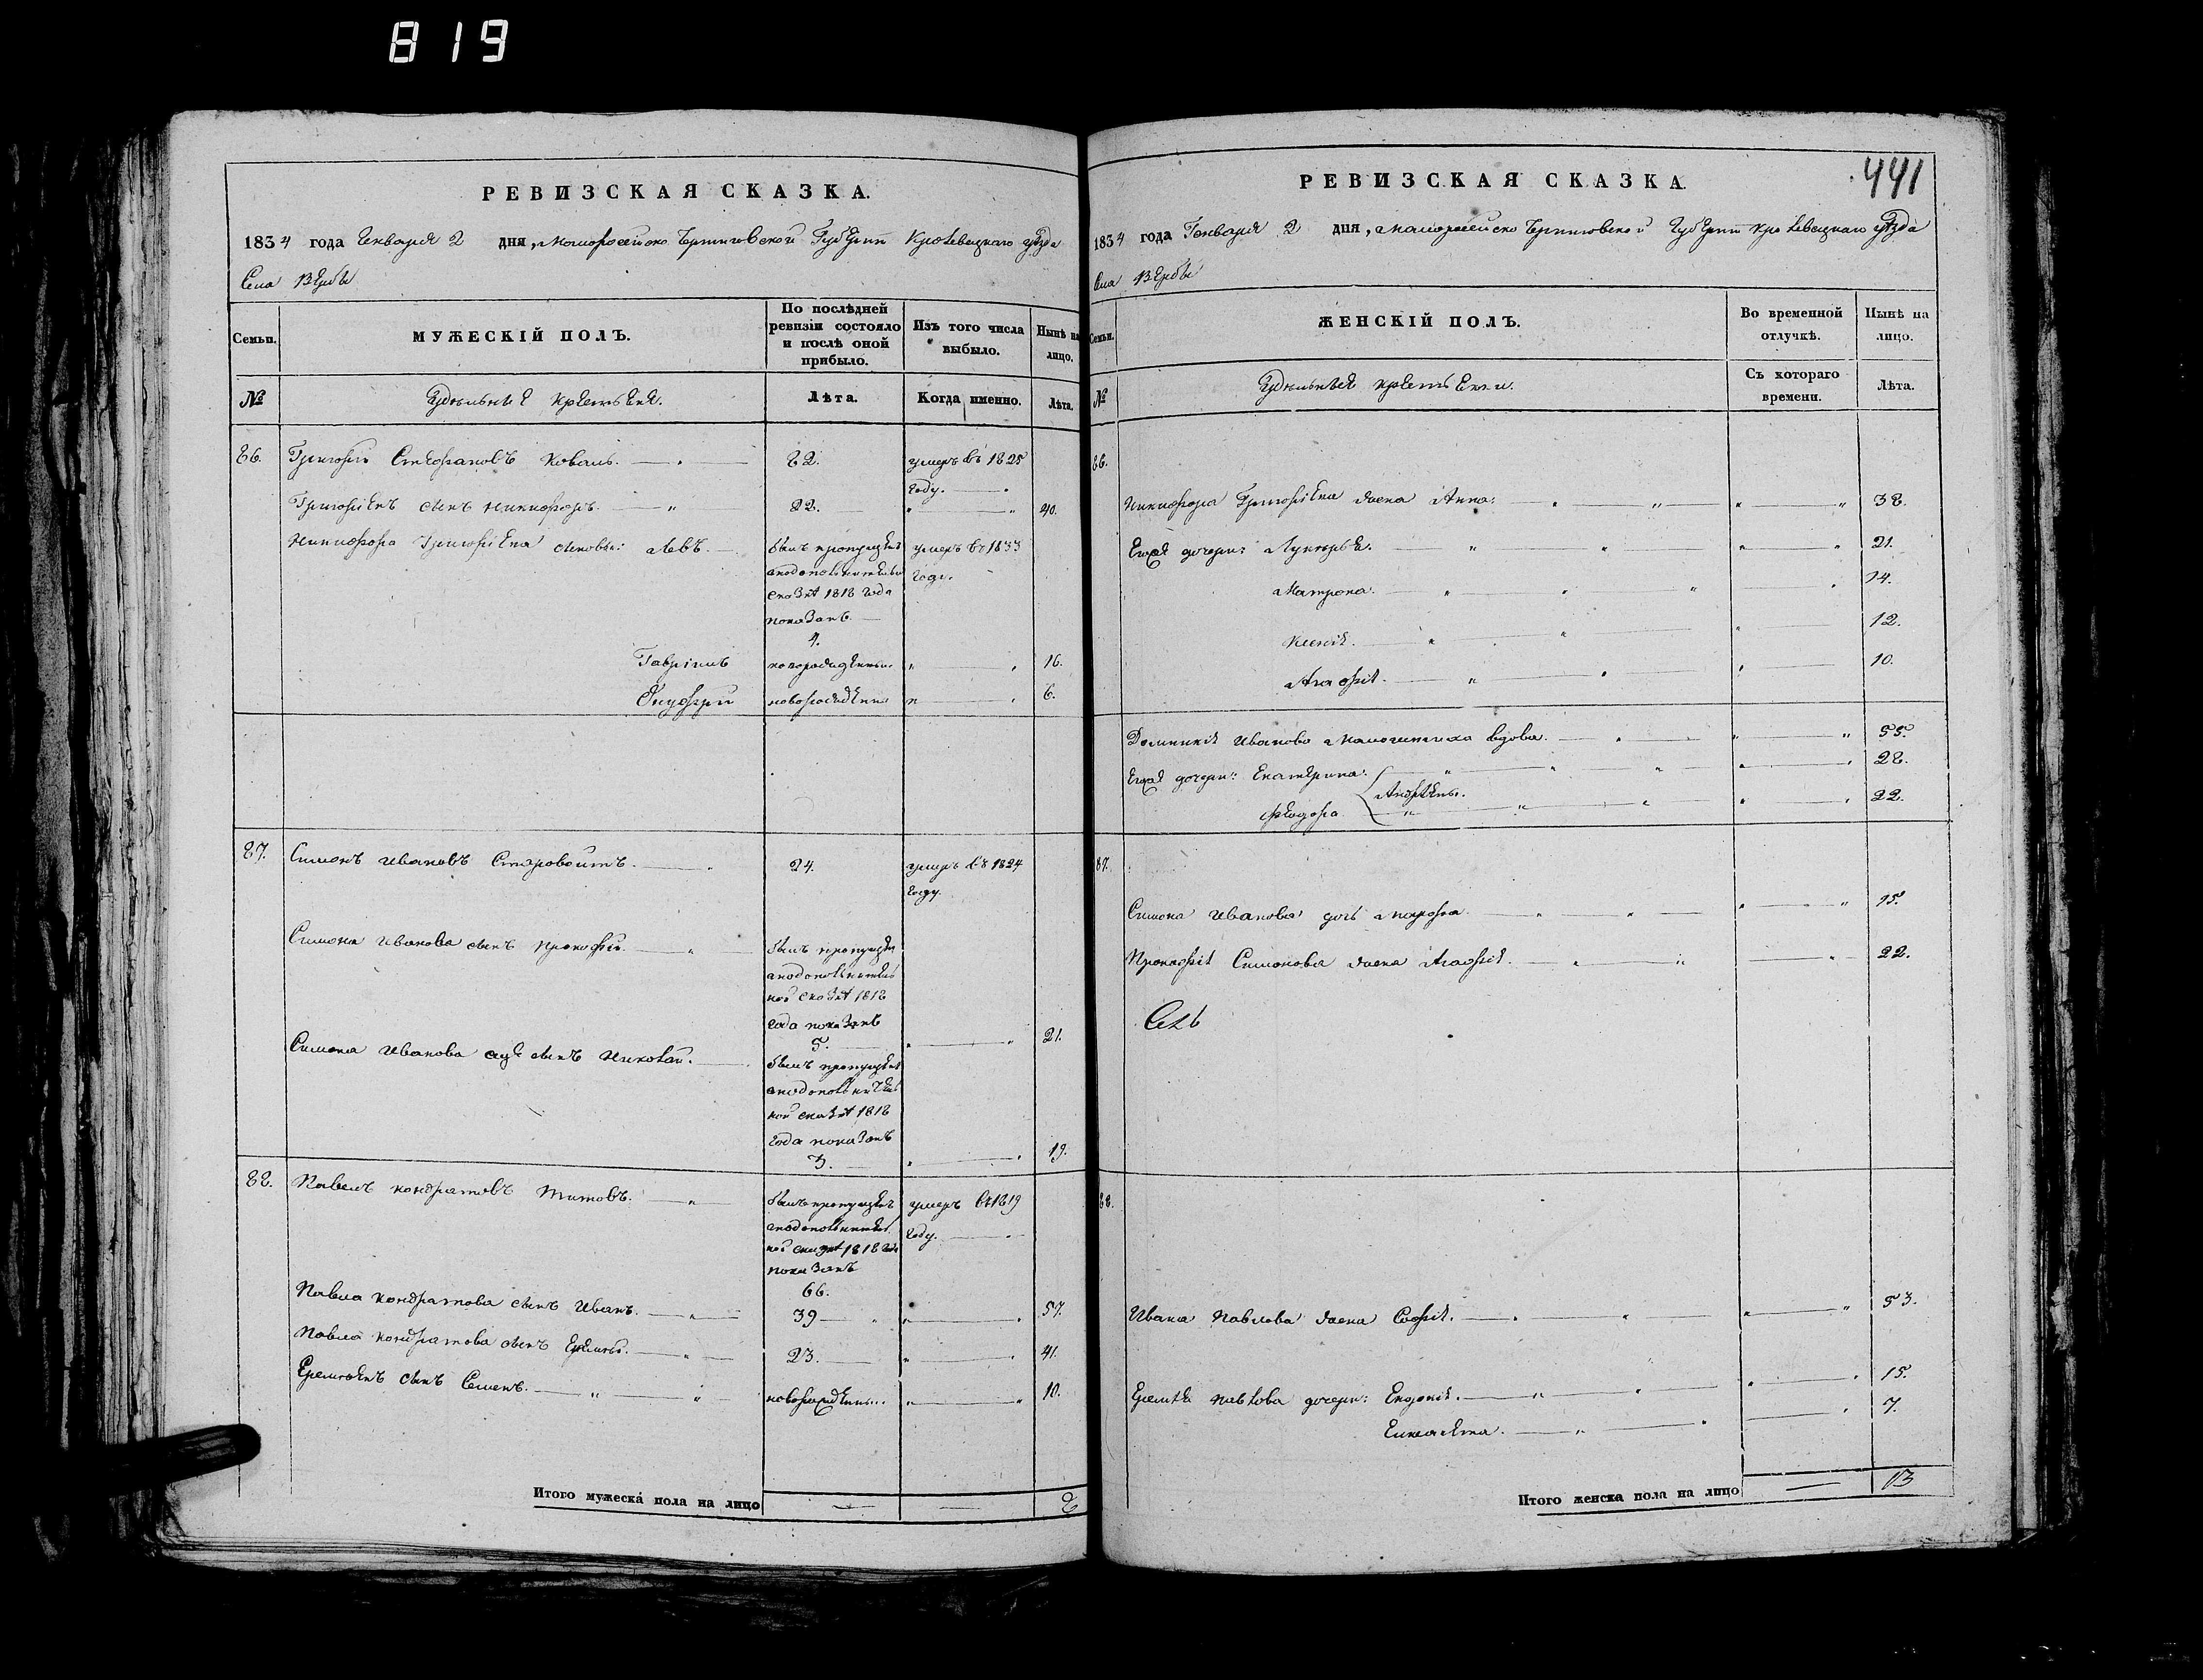 819
РЕВИЗСКАЯ СКАЗКА.
1834 года Генваря 2 дня, Малоросейско Черниговской Губернии Кролевецкаго уѣзда
Села Вербы
Семьи.
МУЖЕСКІЙ ПОЛЪ.
По послѣдней
ревизіи состояло
и послѣ оной
прибыло.
Изъ того числа
выбыло.
Нынѣ на
лицо.
№
Удѣльные крестьяне.
Лѣта.
Когда именно.
Лѣта.
86. Григорій Стефановъ Коваль. 82. умеръ въ 1825
году.
Григоріевъ сынъ Никифоръ. 22. 40.
Никифора Григоріева сыновья: Левъ. былъ пропущенъ умеръ въ 1833
году.
сказкѣ 1818 года
показанъ
4.
Гавріилъ новорожденный 16.
Онуфрій новорожденны 6.
87. Симонъ Ивановъ Старовойтъ. 24. умеръ въ 1824
году.
Симона Иванова сынъ Прокофій. былъ пропущен
ной сказкѣ 1818
года показанъ
5. 21.
Симона Иванова сынъ Николай. былъ пропущен
ной сказкѣ 1818
года показанъ
3. 19.
88. Павелъ Кондратовъ Титовъ. былъ пропущенъ умеръ въ 1819
году.
ной сказкѣ 1818 года
показанъ
66.
Павла Кондратова сынъ Иванъ. 39 57.
Павла Кондратова сынъ Еремѣй. 23. 41.
Еремѣевъ сынъ Семенъ. новорожденны 10.
Итого мужеска пола на лицо 8
441
РЕВИЗСКАЯ СКАЗКА.
1834 года Генваря 2 дня, Малоросейско Черниговской Губернии Кролевецкаго уѣзда
Села Вербы
Семьи.
ЖЕНСКІЙ ПОЛЪ.
Во временной
отлучкѣ.
Нынѣ на
лицо.
№
Удѣльныя крестьянки.
Съ котораго
времени.
Лѣта.
86.
Никифора Григоріева жена Анна. 38.
Егоже дочери: Лукерья. 21.
Матрона. 14.
Ксенія. 12.
Агафія. 10.
Доминикія Иванова вдова. 55.
дочери: Екатерина. 28.
Андреевы.
Феодора 22.
87.
Симона Иванова дочь 15.
Прокофія Симонова жена Агафія. 22.
88.
Ивана Павлова жена Софія. 53.
Еремѣя Павлова дочери: Евдокія. 15.
Елисавета. 7.
Итого женска пола на лицо 13